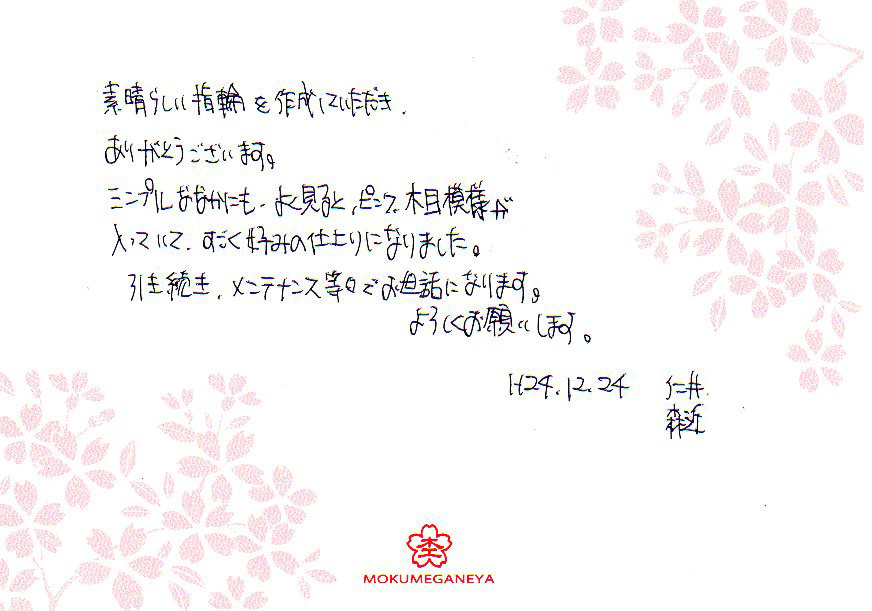 素晴らしい指輪を作成していただき、
ありがとうございます。
シンプルなおかにも、よく見ると、ピンク、木目模様が
入っていて、すごく好みの仕上りになりました。
引き続き、メンテナンス等々でお世話になります。
よろしくお願いします。
H24.12.24 仁井
森近
杢
MOKUMEGANEYA